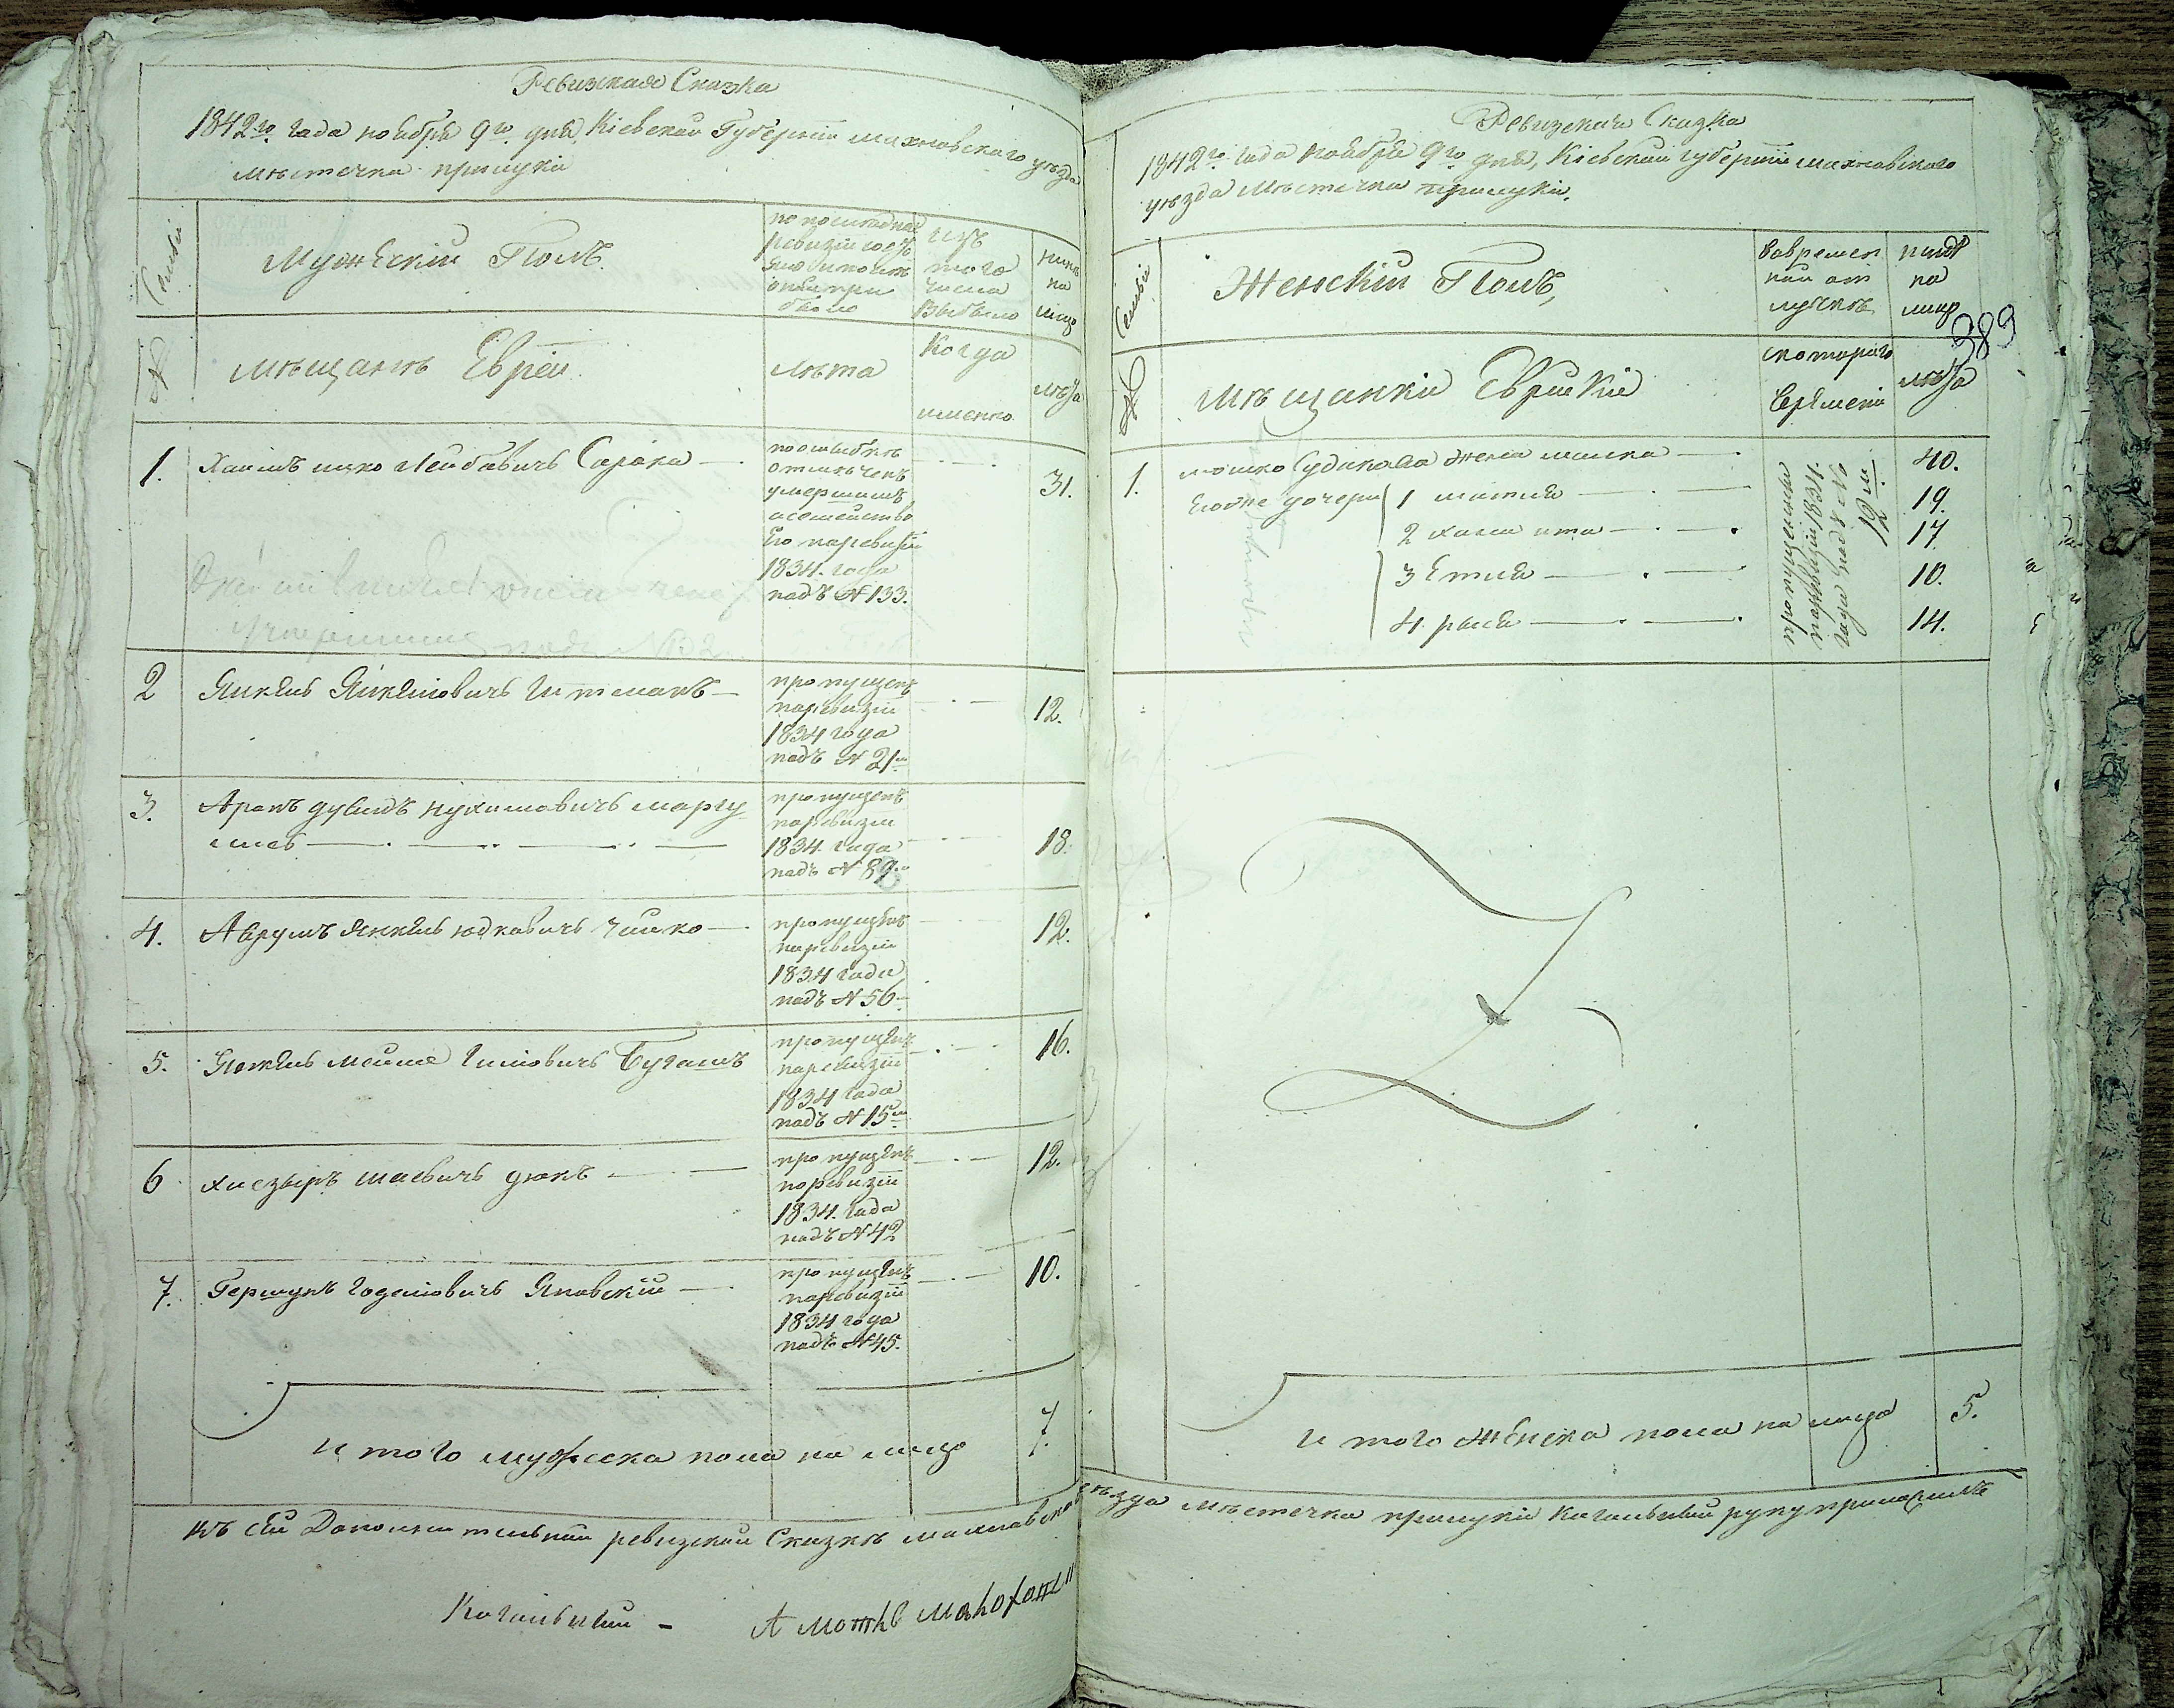 Ревизская Сказка
1842го года ноября 9го дня, Кіевской Губерніи махновского уезда
мѣстечка прилуки
Семьи
Мужескій Полъ.
по последней
ревизіи состо
яло и послѣ
оной при
было
изъ
того
числа
выбыло
нынѣ
на
лицо
№
мѣщанъ Евреи
лѣта
Когда
именно
лѣта
1. Хаимъ ицко Лейбовичъ Сорока
по ошибкѣ
отмѣченъ
умершимъ
а семейство
Его поревизіи
1834. года
подъ № 133.
31.
умершимъ подъ №
2 Янкель Янкелювичъ Гитманъ
пропущенъ
поревизіи
1834 года
подъ № 21м
12.
3. Аронъ дувидъ нухимовичъ маргу
лисъ
пропущенъ
поревизіи
1834 года
подъ № 89м
18.
4. Аврумъ Янкель юдковичъ чайко
пропущенъ
поревизіи
1834 года
подъ № 56
12.
5. Янкель мейше Бугамъ
пропущенъ
поревизіи
1834 года
подъ № 15м
16.
6 хиезыръ шаевичъ дюкъ
пропущенъ
поревизіи
1834. года
подъ № 42
12.
7. Гершунъ годелювичъ Яновскій
пропущенъ
поревизіи
1834 года
подъ № 45.
10.
И того мужеска пола на лицо 7.
Ревизская Сказка
1842го года ноября 9го дня, Кіевской губерніи махновского
уѣзда мѣстечка прилуки.
Семьи
Женскій Полъ,
вовремен
ной от
лучкѣ
нынѣ
на
лицо
389
№
мѣщанки Еврейкіи
скотораго
времени
лѣта
1. мошко Судакова жена малка 40.
Его же дочери 1 матля 19.
2 хана ита 17
3 Етля 10.
4. рыся 14.
пропущены
поревизіи 1834.
года подъ №
12м
И того женска пола на лицо 5.
Къ сей Дополнительной ревизской Сказкѣ махновскаго уѣзда мѣстечка прилуки Кагальный руку приложилъ
Кагальный -